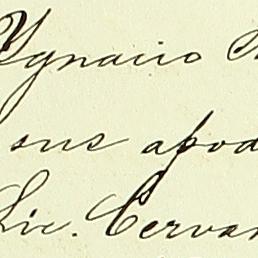 Ygnacio
sus apod
Lic. Cervan